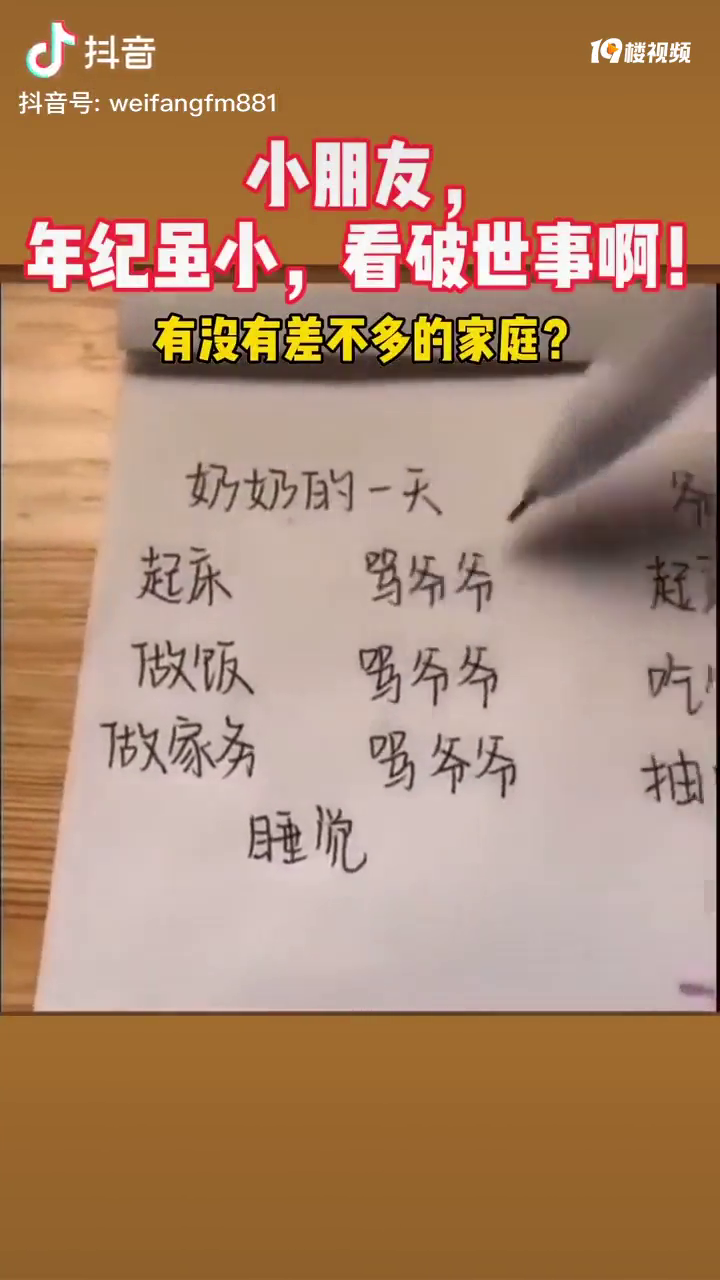 抖音
19楼视频
抖音号: weifangfm881
小朋友，
年纪虽小，看破世事啊！
有没有差不多的家庭？
奶奶的一天
起床 骂爷爷 起
做饭 骂爷爷 吃
做家务 骂爷爷 抽
睡觉